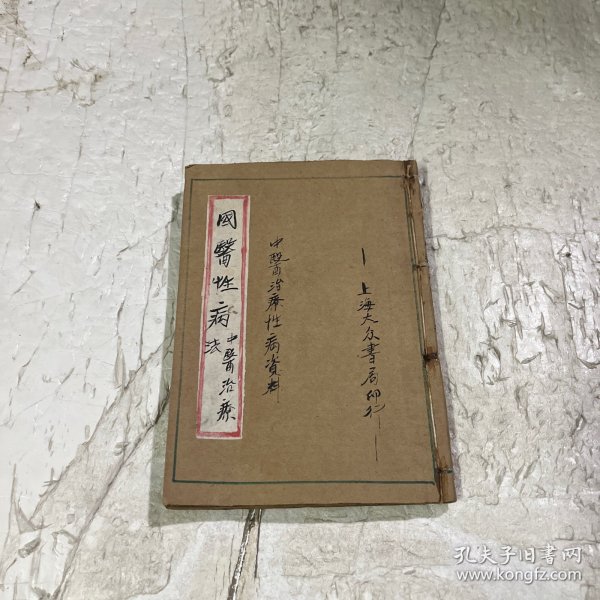 國醫性病
中醫治療
法
中醫治療性病資料
上海大众書局印行
孔夫子旧书网
www.kongfz.com